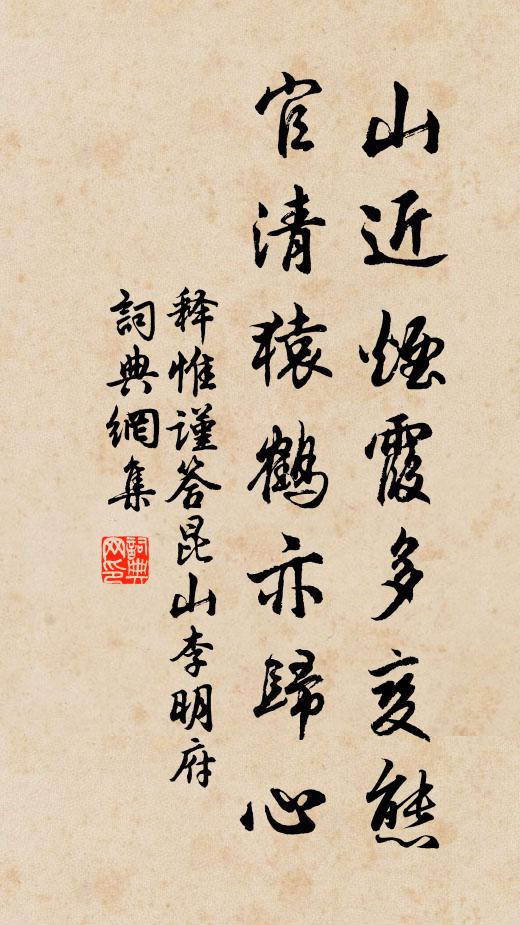 山近煙霞多変態
官清猿鶴亦歸心
释惟谨答昆山李明府
詞典網集
詞典網印